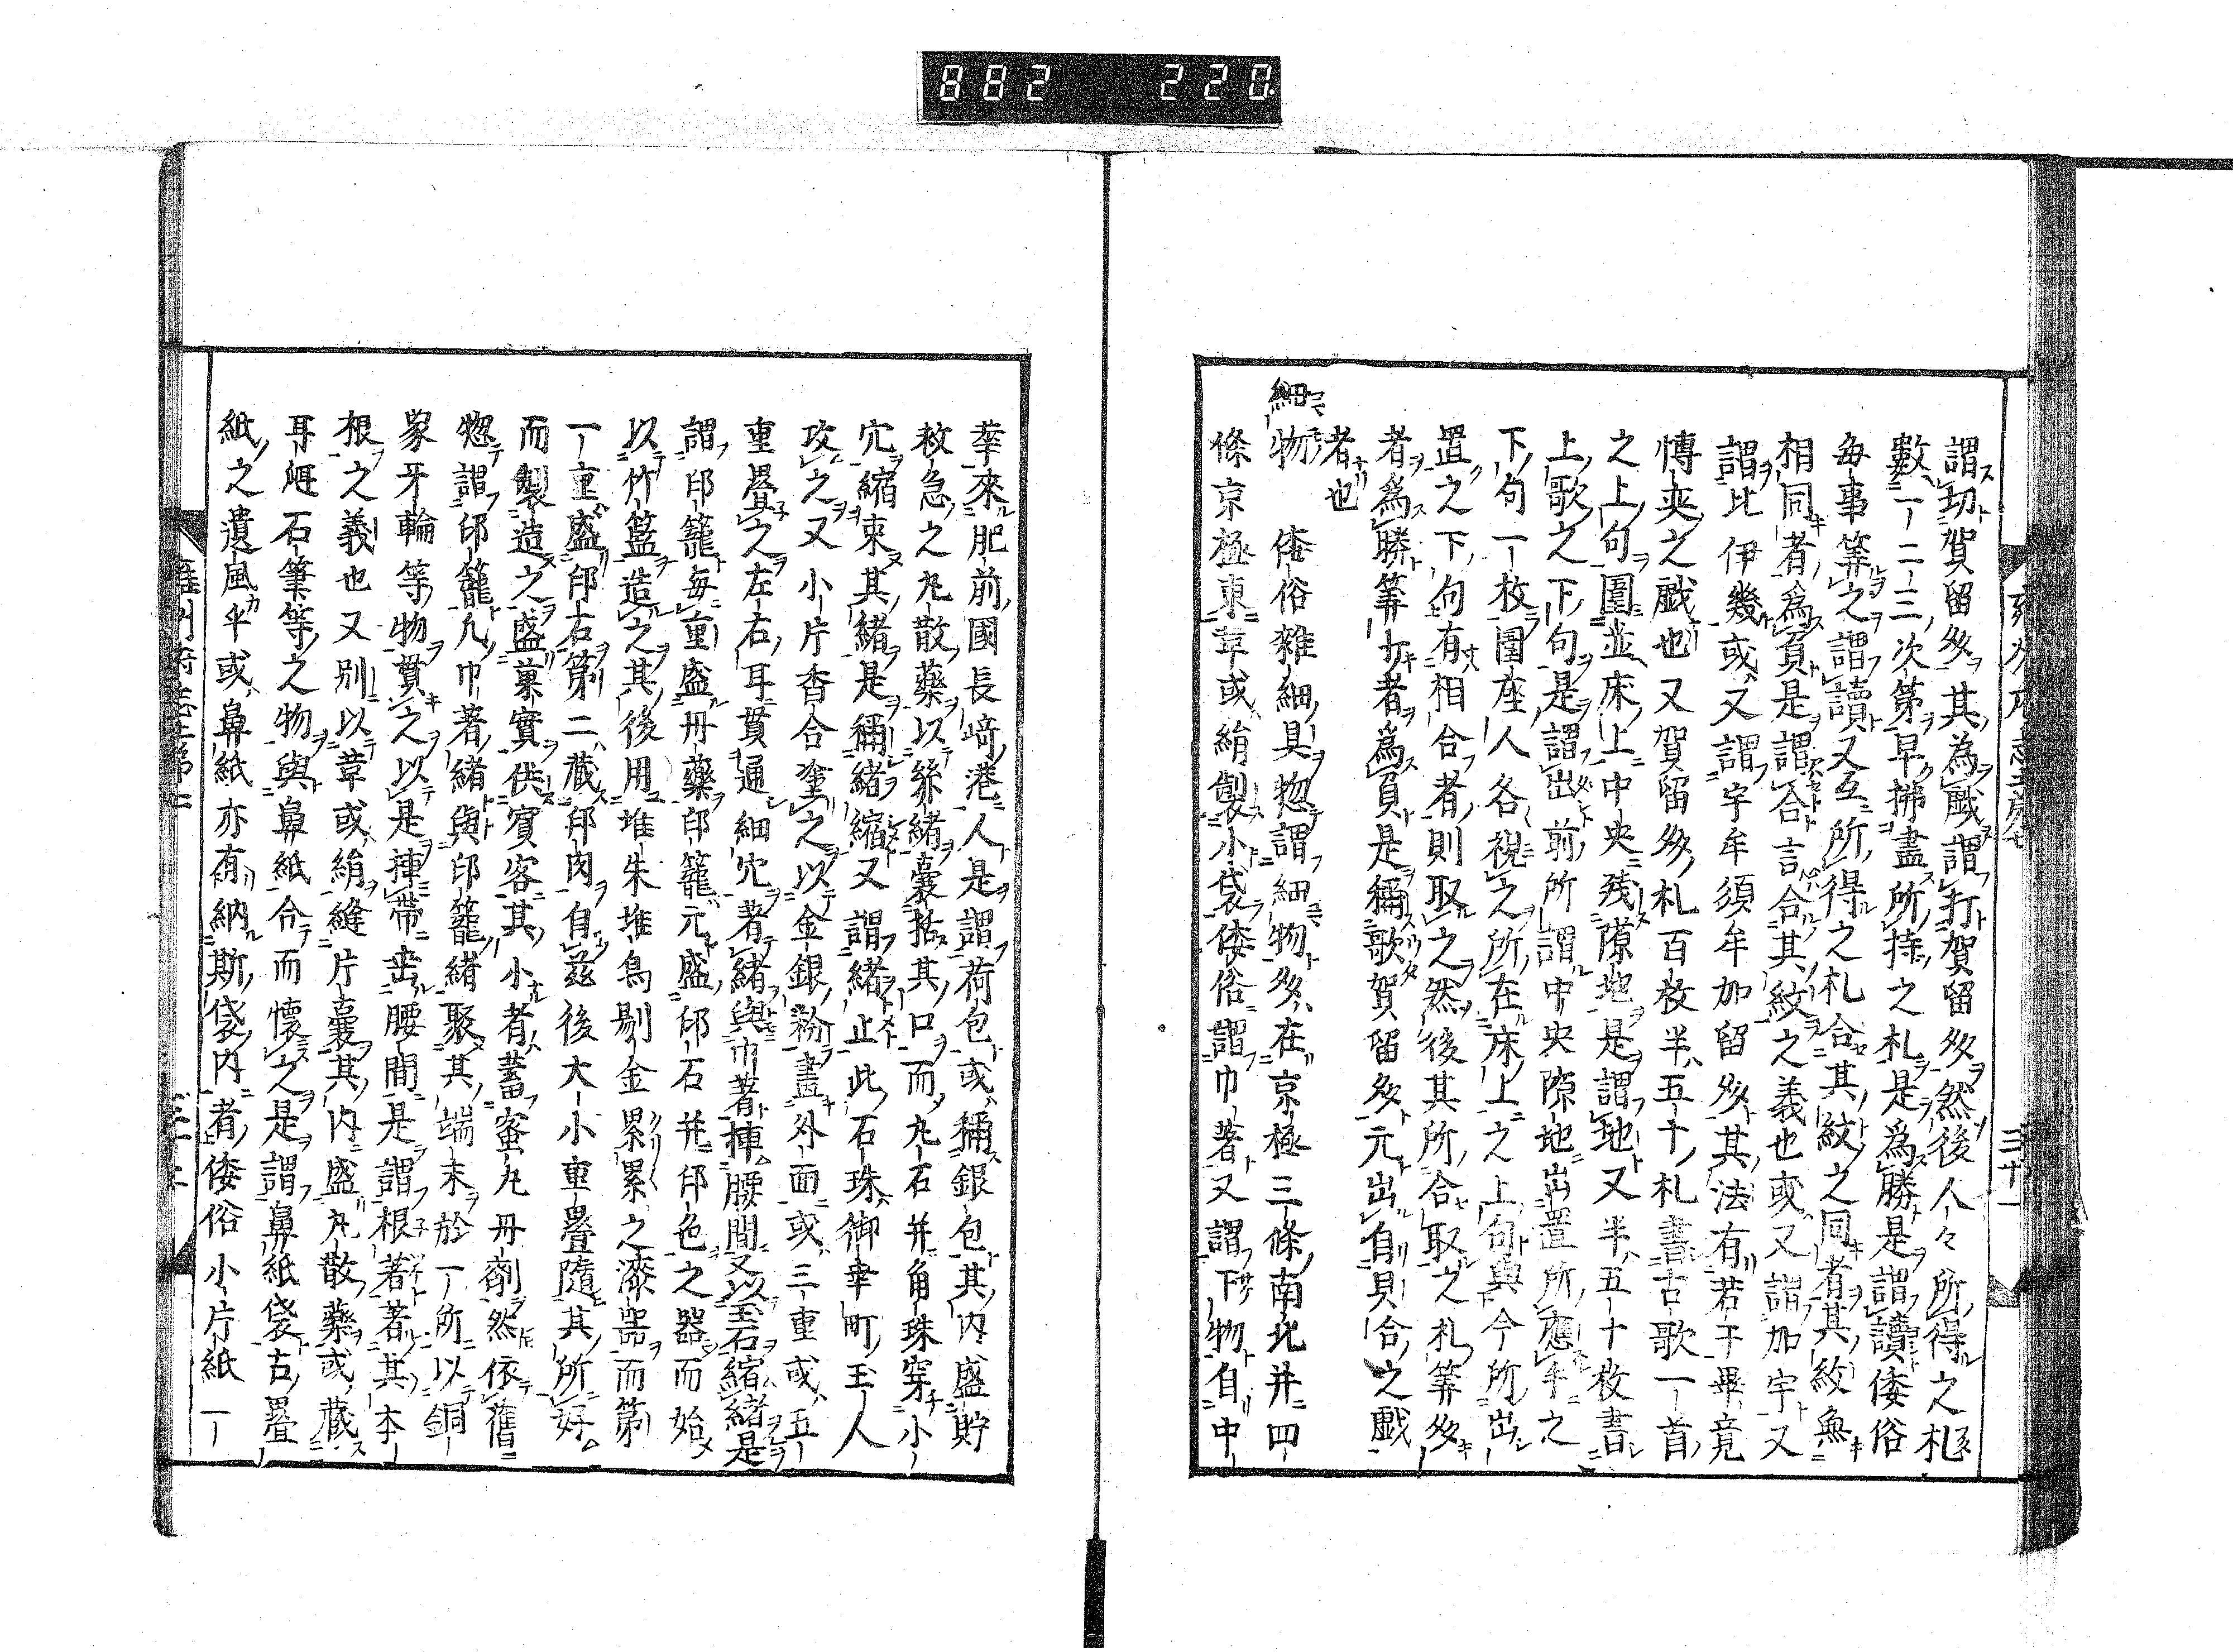 882 220
謂切賀留多其為戯謂打賀留多然後人々所得之札
數一二三次第早拂盡所持之札是爲勝是謂讀倭俗
毎事筭之謂讀又互所得之札合其紋之同者其紋無
相同者爲負是謂合言合其紋之義也或又謂加宇又
謂比伊幾或又謂宇牟須牟加留多其法有若干畢竟
慱奕之戯也又賀留多札百枚半五十札書古歌一首
之上句圍並床上中央残隙地是謂地又半五十枚書
上歌之下句是謂出前所謂中央隙地出置所應手之
下句一枚圍座人各視之所在床上之上句與今所出
置之下句有相合者則取之然後其所合取之札筭多
者爲勝筭少者爲負是稱歌賀留多元出自貝合之戯
者也
細物 倭俗雜細具惣謂細物多在京極三條南北并四
條京極東韋或絹製小袋倭俗謂巾著又謂下物自中
華來肥前國長﨑港人是謂荷包或稱銀包其内盛貯
救急之丸散藥以絲緒嚢括其口而丸石并角珠穿小
穴縮束其緒是稱緒縮又謂緒止此石珠御幸町玉人
攻之又小片香合塗之以金銀粉畫外面或三重或五
重疊之左右耳貫通細穴著緒與巾著挿腰間又以玉石縮緒是
謂印籠毎重盛丹藥印籠元盛印石并印色之器而始
以竹簋造之其後用堆朱堆烏剔金累累之漆噐而第
一重盛印石第二藏印肉自茲後大小重疊隨其所好
而製造之盛菓實供賓客其小者蓄蜜丸丹劑然依舊
惣謂印籠凡巾著緒與印籠緒聚其端末於一所以銅
象牙輪等物貫之以是挿帶垂腰間是謂根著著其本
根之義也又別以韋或絹縫片嚢其内盛丸散藥或藏
耳匙石筆等之物與鼻紙合而懷之是謂鼻紙袋古疊
紙之遺風乎或鼻紙亦有納斯袋内者倭俗小片紙一
三十一